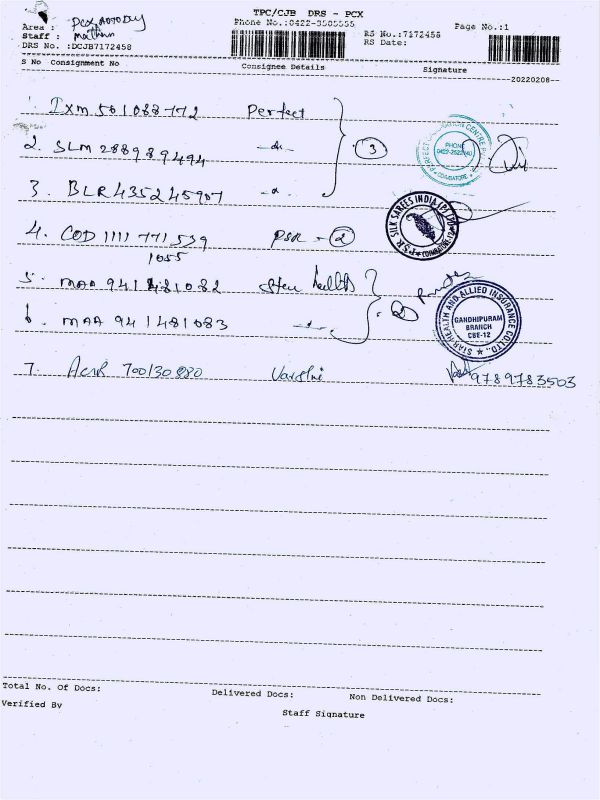 TPC/CJB DRS - PCX
Area : PCX
Phone No.:0422-3505555
Page No.:1
Staff : Mathan
RS No.:7172458
DRS No. :DCJB7172458
RS Date:
S No Consignment No Consignee Details Signature
20220208
1. IXM 561088772 Perfect
2. SLM 288989494 -do-
3
PHONE
COIMBATORE
3. BLR 435245907
PSR SILK SAREES INDIA (P) LTD
COIMBATORE
4. COD 1111 771539 PSR - 2
1055
5. MAA 941481082 Star health
6. MAA 941481083
STAR HEALTH AND ALLIED INSURANCE CO.LTD.
GANDHIPURAM
BRANCH
CBE-12
7. 700130880 Varshni 9789783503
Total No. Of Docs: Delivered Docs: Non Delivered Docs:
Verified By Staff Signature